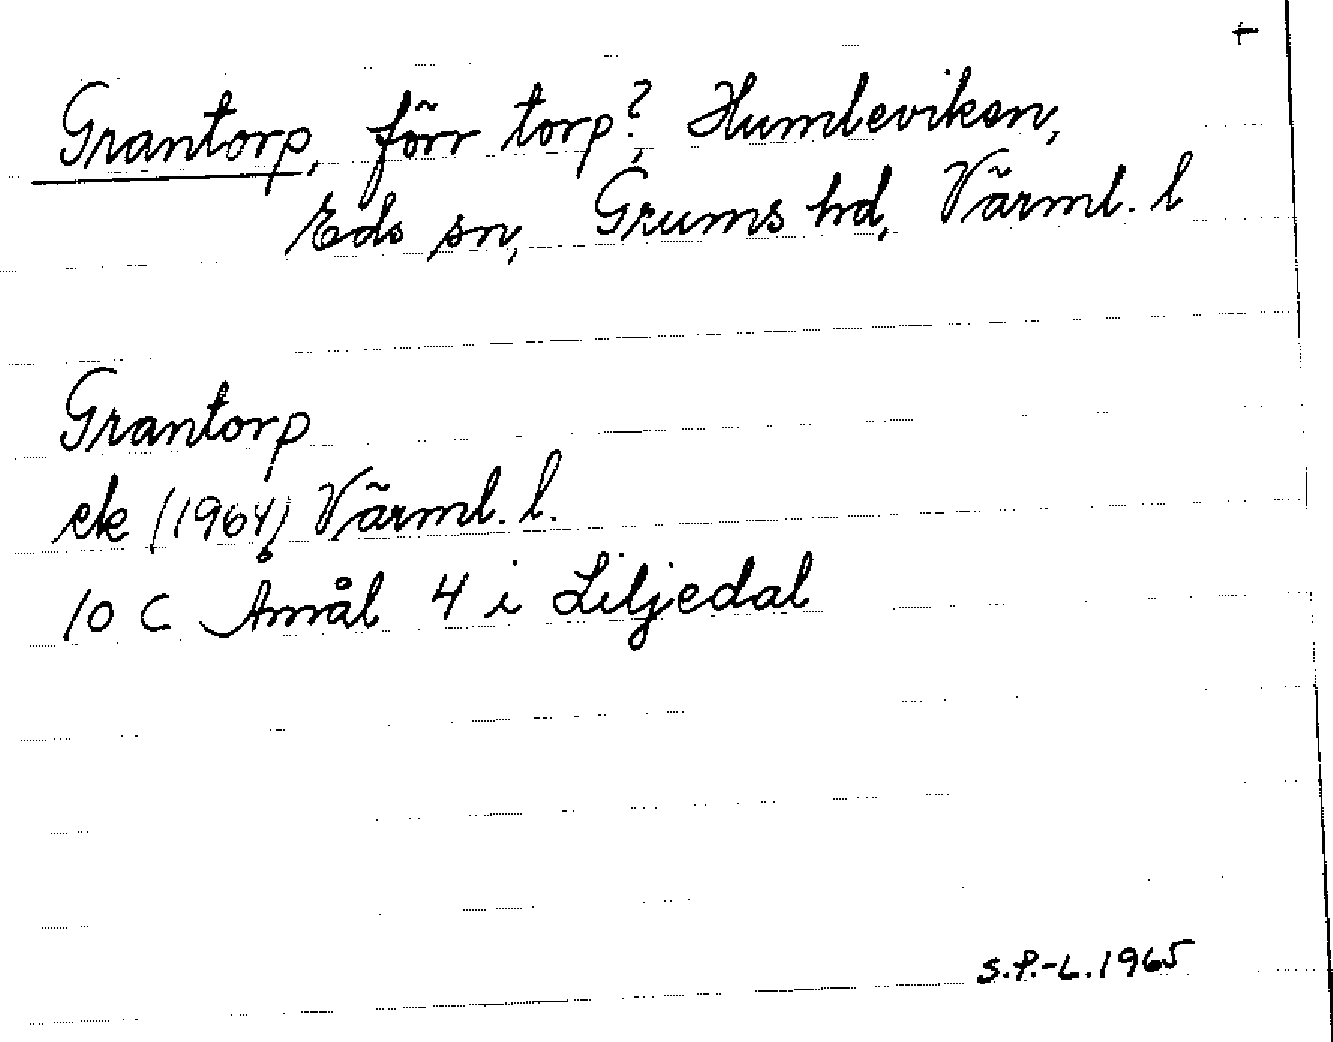 †
Grantorp, förr torp?, Humleviken,
Eds sn, Grums hd, Värml. l
Grantorp
ek (1964) Värml. l.
10 C Åmål 4 i Liljedal
S.P.-L. 1965